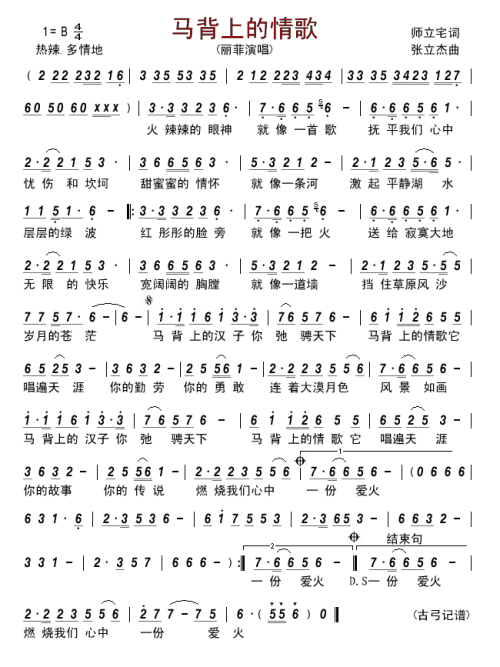 马背上的情歌
1= B 4/4
师立宅词
热辣 多情地
(丽菲演唱)
张立杰曲
( 2 22 232 16 | 3 35 53 35 | 2 12 223 434 | 33 35 3423 127 |
60 50 60 xxx ) | 3·3 323 6· | 7·6 65 6 5 · | 6·6 656 1 · |
火 辣辣的 眼神 就 像 一首 歌 抚 平我们 心中
2·2 21 53 · | 36 656 3 · | 5·3 21 2 - | 2·1 23 5·65 · |
忧 伤 和 坎坷 甜蜜蜜的 情怀 就 像一条河 激 起 平静湖 水
11 51·6 - ‖: 3·3 323 6 · | 7·6 65·6 · | 6·6 656 1 · |
层层的绿 波 红 彤彤的脸 旁 就 像一把 火 送 给 寂寞大地
2·2 21 53 · | 36 656 3 · | 5·3 21 2 - | 2·1 23 5·5 5 |
无 限 的 快乐 宽阔阔的 胸膛 就 像一道墙 挡 住草原风 沙
77 57·6 - | 6 - | 1·1 161 3·3 | 76 576 - | 61 126 55 |
岁月的苍 茫 马 背 上的汉 子 你 弛 骋天下 马背 上的情歌它
65 253 - | 3632 - | 25 561 - | 2·2 2355 6 | 7·6 656 - |
唱遍天 涯 你的勤 劳 你的 勇 敢 连 着大漠月色 风 景 如画
1·1 161 3·3 | 76 576 - | 61 126 5 5 | 65 25 3 - |
马 背上的 汉子 你 弛 骋天下 马 背 上的情 歌 它 唱遍 天 涯
3632 - | 25 561 - | 2·2 235 56 | 7·6 656 - | (0 666 |
1
你的故事 你的 传 说 燃 烧我们心中 一 份 爱火
631·6 | 2·353 6 - | 61 755 3 | 2·323 5 - | 2·3 653 - |
结束句
331 - | 2·3 57 | 666 - ):‖ 7·6 656 - ‖ 7·6 656 - |
2
一 份 爱火 D.S一 份 爱火
2·2 235 56 | 277 - 75 | 6·( 556 ) 0 ‖
(古弓记谱)
燃 烧我们 心中 一份 爱 火